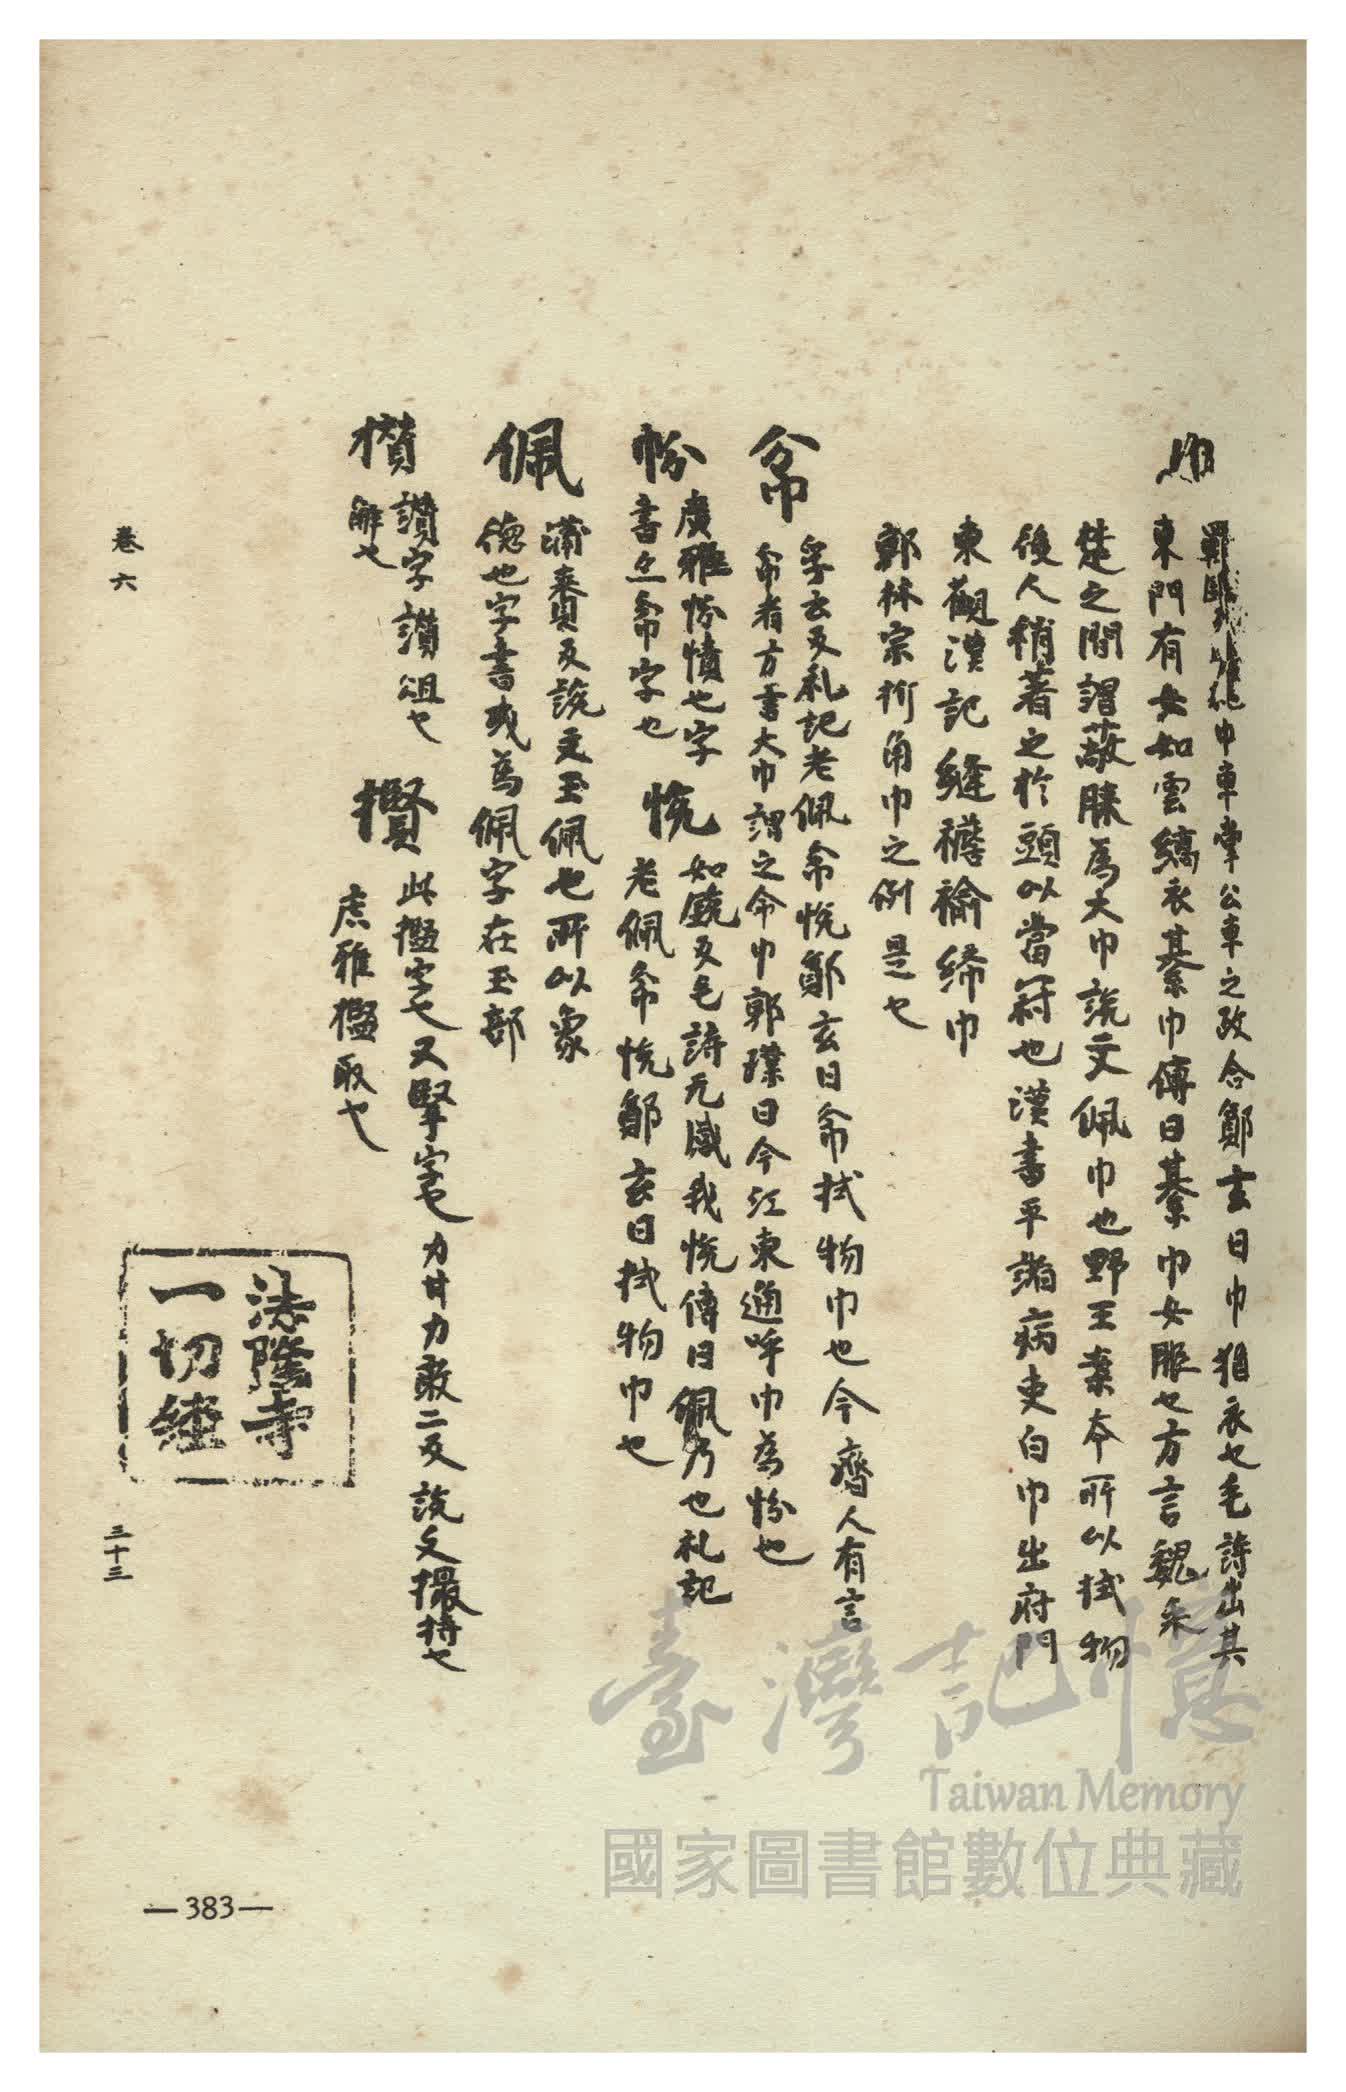 巾車掌公車之政令鄭玄曰巾猶衣也毛詩出其
東門有女如雲縞衣綦巾傳曰綦巾女服也方言魏宋
楚之間謂蔽膝為大巾說文佩巾也野王案本所以拭物
後人稍著之於頭以當冠也漢書平諸病吏白巾出府門
東觀漢記縫襜褕絺巾
郭林宗折角巾之例是也
帉
孚云反礼記老佩帉帨鄭玄曰帉拭物巾也今齊人有言
帉者方言大巾謂之帉巾郭璞曰今江東通呼巾為帉也
帉
廣雅帉幩也字
書亦帉字也
帨
如銳反毛詩无感我帨傳曰佩乃也礼記
老佩帉帨鄭玄曰拭物巾也
佩
蒲賚反說文玉佩也所以象
德也字書或為佩字在玉部
攢
讃字讃俎也
解也
擥
此㩜字也又擥字也力甘力敢二反說文撮持也
㩜取也
法隆寺
一切經
卷六
三十三
—383—
臺灣記憶
Taiwan Memory
國家圖書館數位典藏